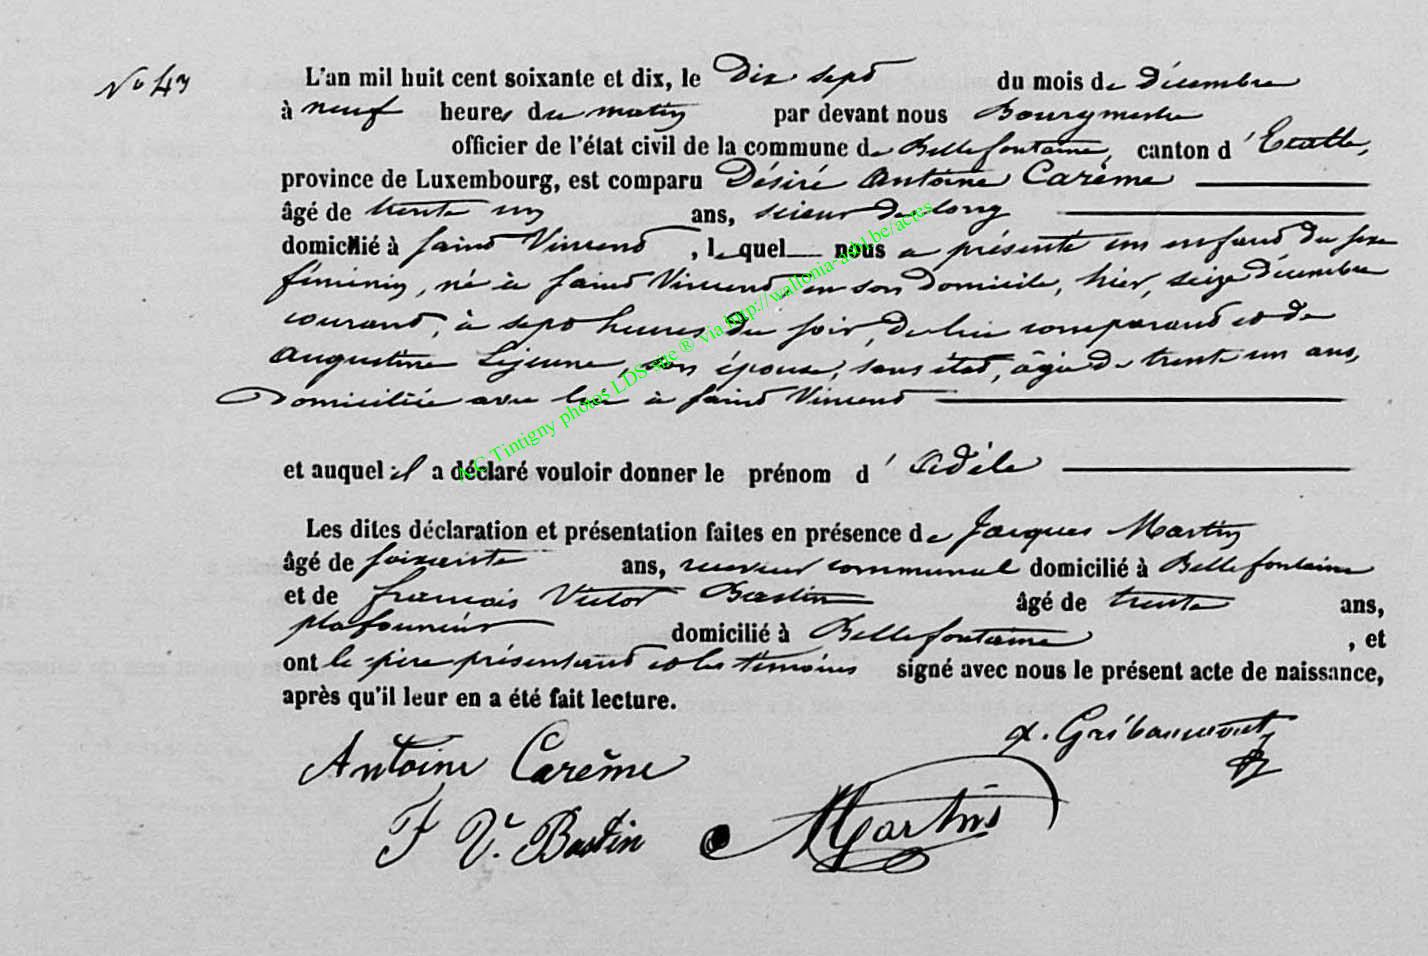 No 43
L'an mil huit cent soixante et dix, le Dix sept du mois de décembre
à neuf heures du matin par devant nous Bourgmestre
officier de l'état civil de la commune de Bellefontaine, canton d'Etalle,
province de Luxembourg, est comparu Désiré Antoine Carême
âgé de trente un ans, scieur de long
domicilié à Saint Vincent, lequel nous a présenté un enfant du sexe
féminin, né à Saint Vincent, en son domicile, hier, seize décembre
courant, à sept heures du soir, de lui comparant et de
Augustine Lejeune, son épouse, sans état, âgée de trente un ans,
Domiciliée avec lui à Saint Vincent
et auquel il a déclaré vouloir donner le prénom d'Adèle
Les dites déclaration et présentation faites en présence de Jacques Martin
âgé de soixante ans, receveur communal domicilié à Bellefontaine
et de François Victor Bastin âgé de trente ans,
plafonneur domicilié à Bellefontaine, et
ont le père présentant et les témoins signé avec nous le présent acte de naissance,
après qu'il leur en a été fait lecture.
Antoine Carême
Gribaumont
F V. Bastin
Martin
AC Tintigny photos LDS site ® via http://wallonia-asbl.be/actes